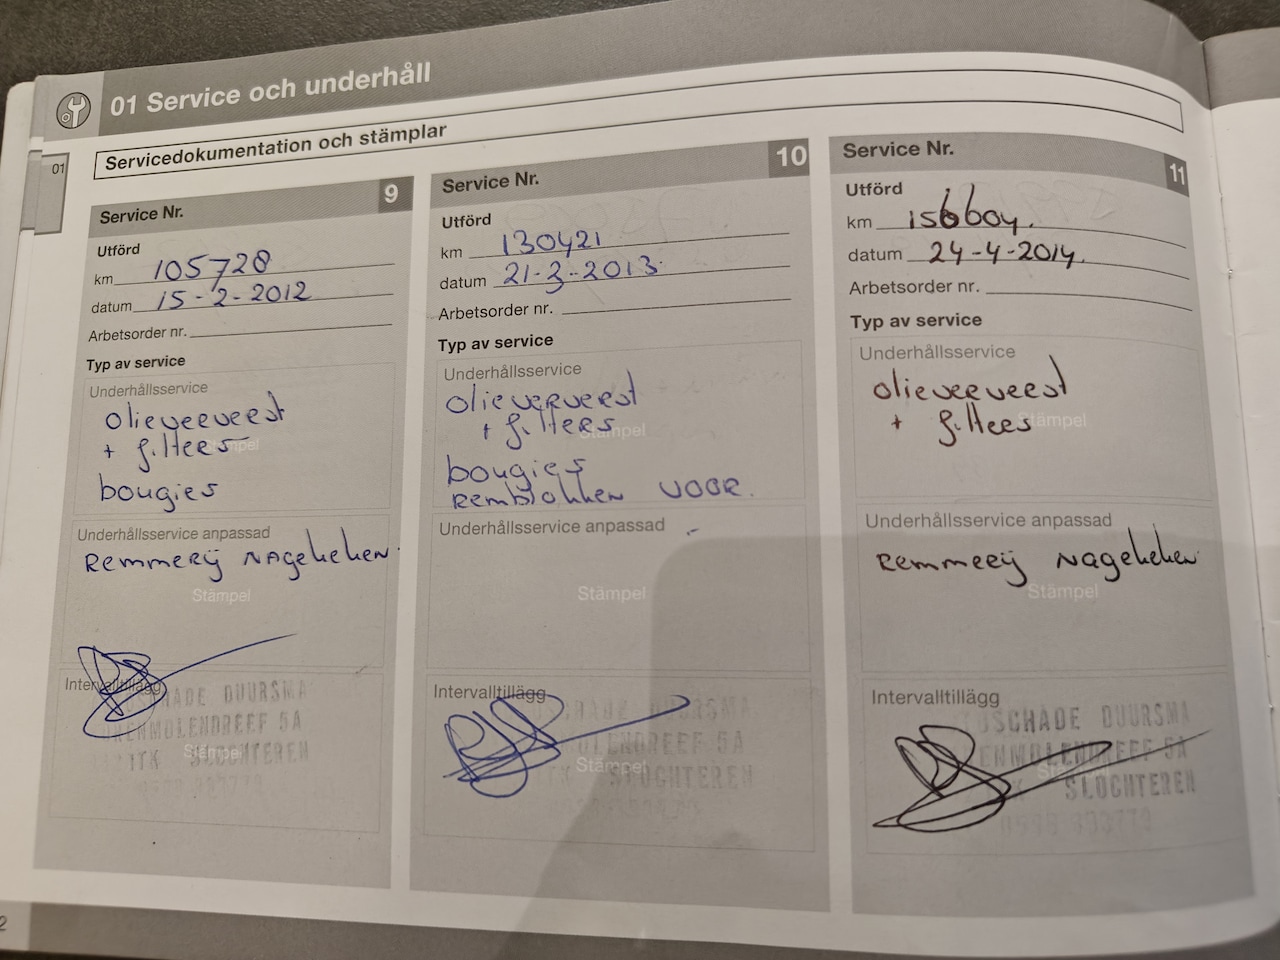 01 Service och underhåll
Servicedokumentation och stämplar
01
Service Nr. 9
Utförd
km 105728
datum 15-2-2012
Arbetsorder nr.
Typ av service
Underhållsservice
olieververst
+ filters
Stämpel
bougies
Underhållsservice anpassad
Remmerij nagekeken
Stämpel
Intervalltillägg
SCHADE DUURSMA
ENMOLENDREEF 5A
TK SLOCHTEREN
Stämpel
Service Nr. 10
Utförd
km 130421
datum 21-3-2013.
Arbetsorder nr.
Typ av service
Underhållsservice
olieververst
+ filters
Stämpel
bougies
Remblokken VOOR.
Underhållsservice anpassad
Stämpel
Intervalltillägg
SCHADE DUURSMA
OLENDREEF 5A
Stämpel
SLOCHTEREN
Service Nr. 11
Utförd
km 156604.
datum 24-4-2014.
Arbetsorder nr.
Typ av service
Underhållsservice
olieververst
+ filters
Stämpel
Underhållsservice anpassad
Remmerij nagekeken
Stämpel
Intervalltillägg
OSCHADE DUURSMA
ENMOLENDREEF 5A
SLOCHTEREN
2